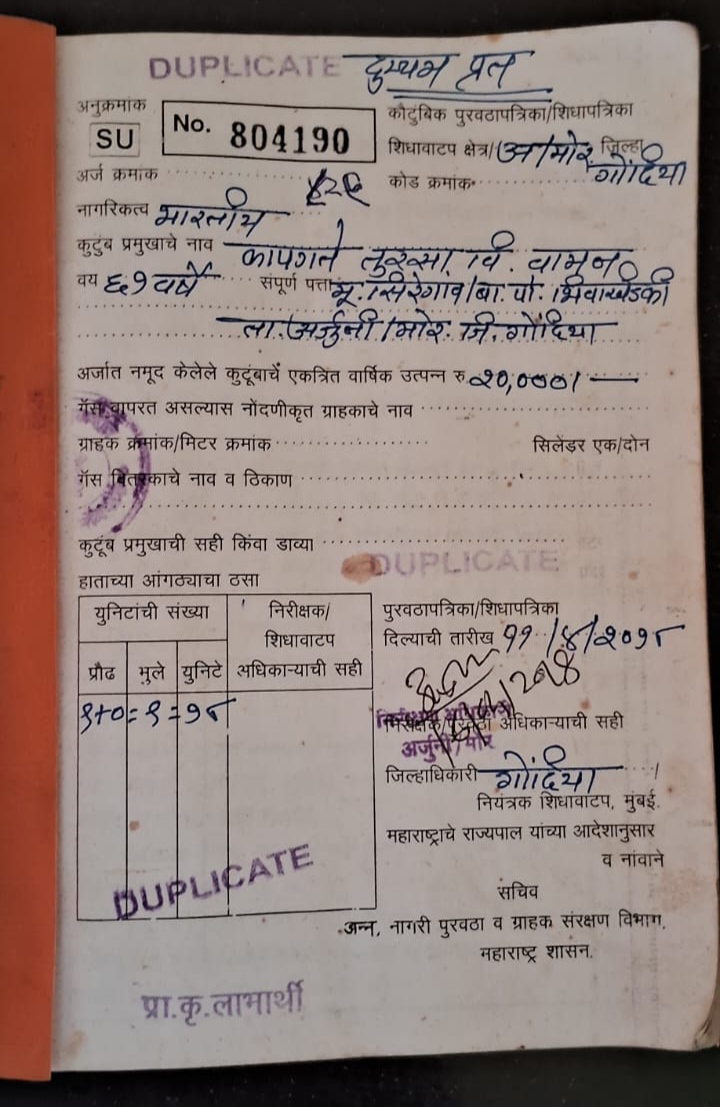 DUPLICATE दुय्यम प्रत
अनुक्रमांक
SU No. 804190
कौटुंबिक पुरवठापत्रिका/शिधापत्रिका
शिधावाटप क्षेत्र/अ/मोर जिल्हा गोंदिया
अर्ज क्रमांक
कोड क्रमांक
नागरिकत्व भारतीय
कुटुंब प्रमुखाचे नाव कापगते तुरसा वि. वामन
वय ६१ वर्षे संपूर्ण पत्ता मू. सिरेगाव/बा. पो. भिवाखिडकी
ता. अर्जुनी/मोर. जि. गोंदिया
अर्जात नमूद केलेले कुटूंबाचें एकत्रित वार्षिक उत्पन्न रु २०,०००/-
गॅस वापरत असल्यास नोंदणीकृत ग्राहकाचे नाव
ग्राहक क्रमांक/मिटर क्रमांक सिलेंडर एक/दोन
गॅस वितरकाचे नाव व ठिकाण
कुटूंब प्रमुखाची सही किंवा डाव्या
DUPLICATE
हाताच्या आंगठ्याचा ठसा
युनिटांची संख्या
प्रौढ भुले युनिटे
निरीक्षक/
शिधावाटप
अधिकाऱ्याची सही
१+०=१=१८
पुरवठापत्रिका/शिधापत्रिका
दिल्याची तारीख ११/४/२०१८
निरीक्षक/पुरवठा अधिकाऱ्याची सही
अर्जुनी/मोर
जिल्हाधिकारी गोंदिया
नियंत्रक शिधावाटप, मुंबई.
महाराष्ट्राचे राज्यपाल यांच्या आदेशानुसार
व नांवाने
सचिव
DUPLICATE
अन्न, नागरी पुरवठा व ग्राहक संरक्षण विभाग,
महाराष्ट्र शासन.
प्रा.कृ.लाभार्थी